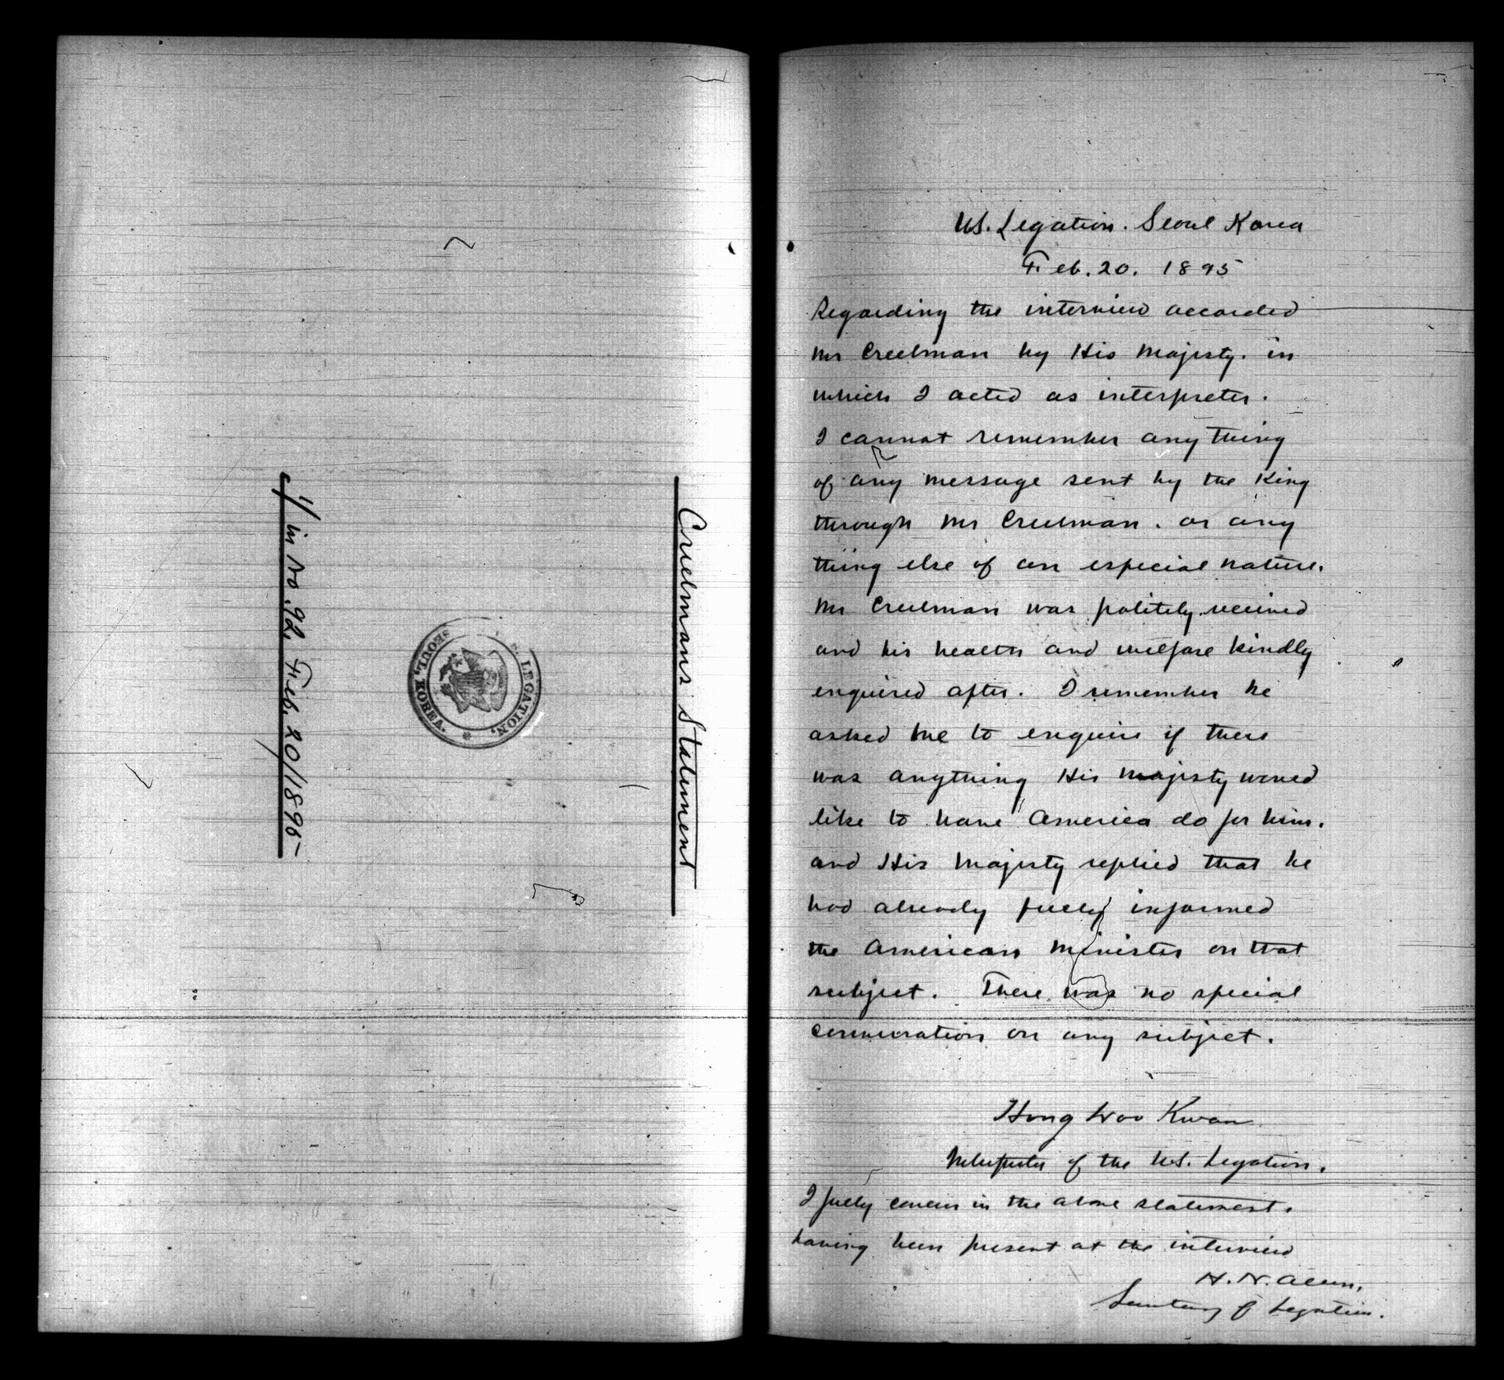 Creelmans Statement
LEGATION,
SEOUL, KOREA.
c/1 in no 92, Feb. 20/1895
US. Legation. Seoul Korea
Feb. 20. 1895
Regarding the interview accorded
Mr Creelman by His Majesty. in
which I acted as interpreter.
I cannot remember any thing
of any message sent by the King
through Mr Creelman. or any
thing else of an especial nature.
Mr Creelman was politely received
and his health and welfare kindly
enquired after. I remember he
asked me to enquire if there
was anything His Majesty would
like to have America do for him.
and His Majesty replied that he
had already fully informed
the American Minister on that
subject. There was no special
conversation on any subject.
Hong Woo Kwan
Interpreter of the US. Legation.
I fully concur in the above statement.
having been present at the interview
H. N. Allen,
Secretary of Legation.